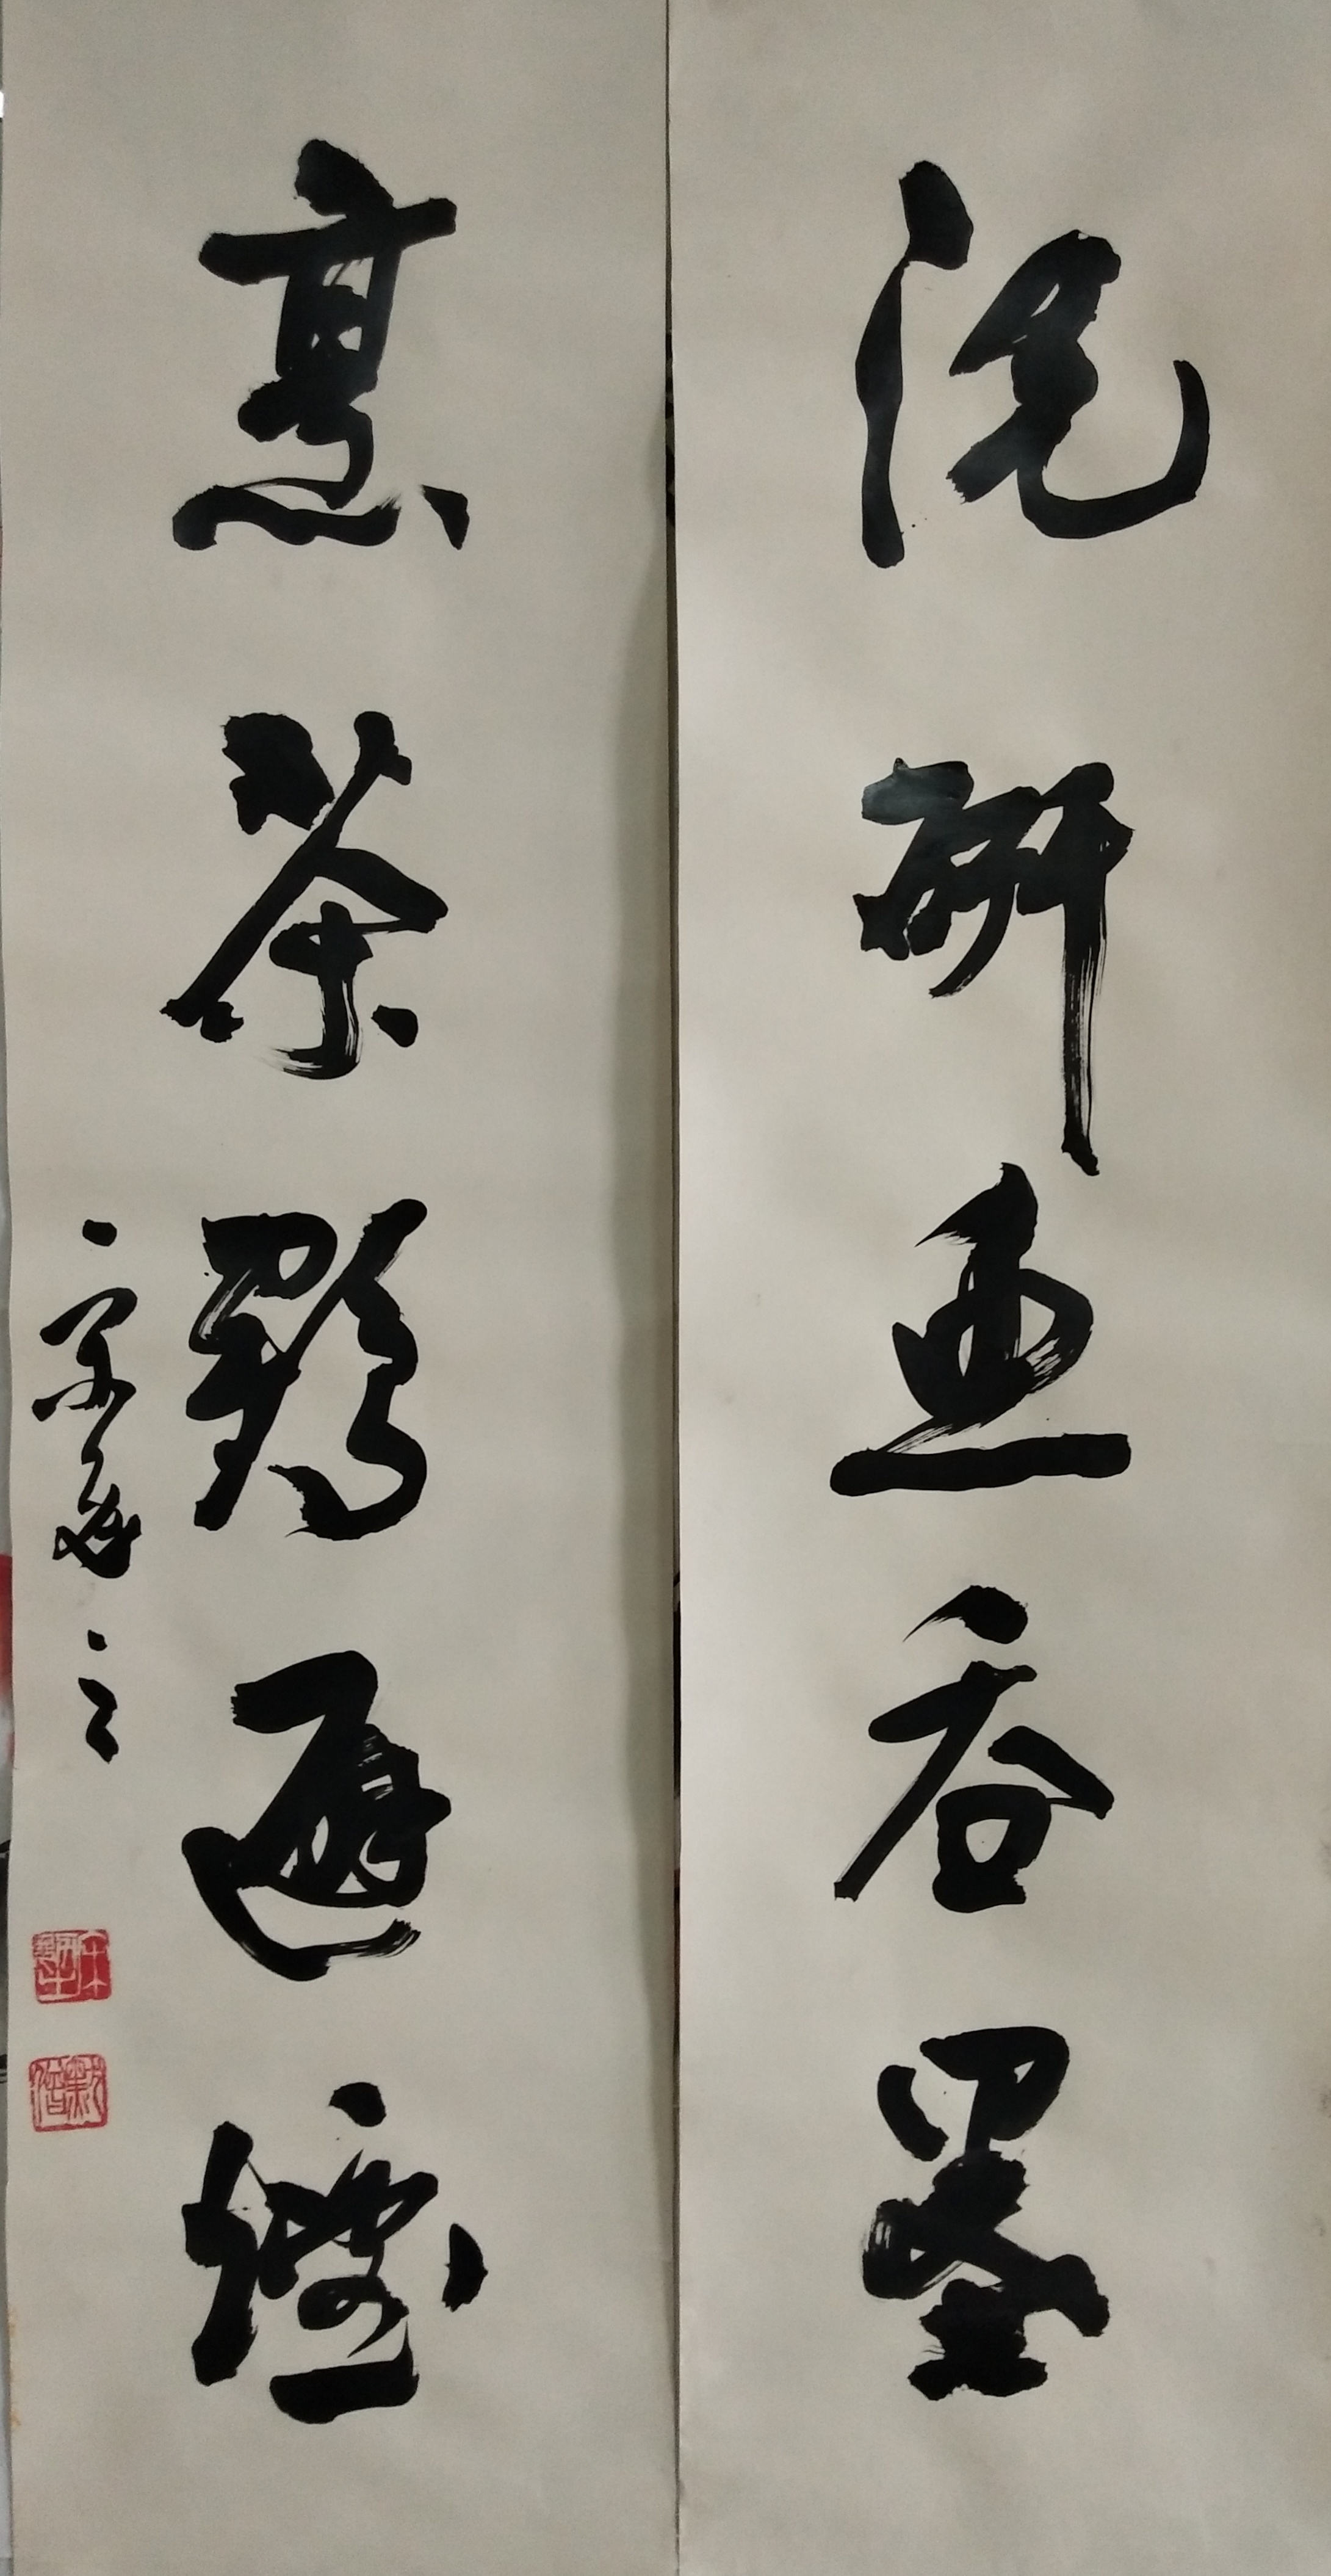 洗研鱼吞墨
烹茶鹤避烟